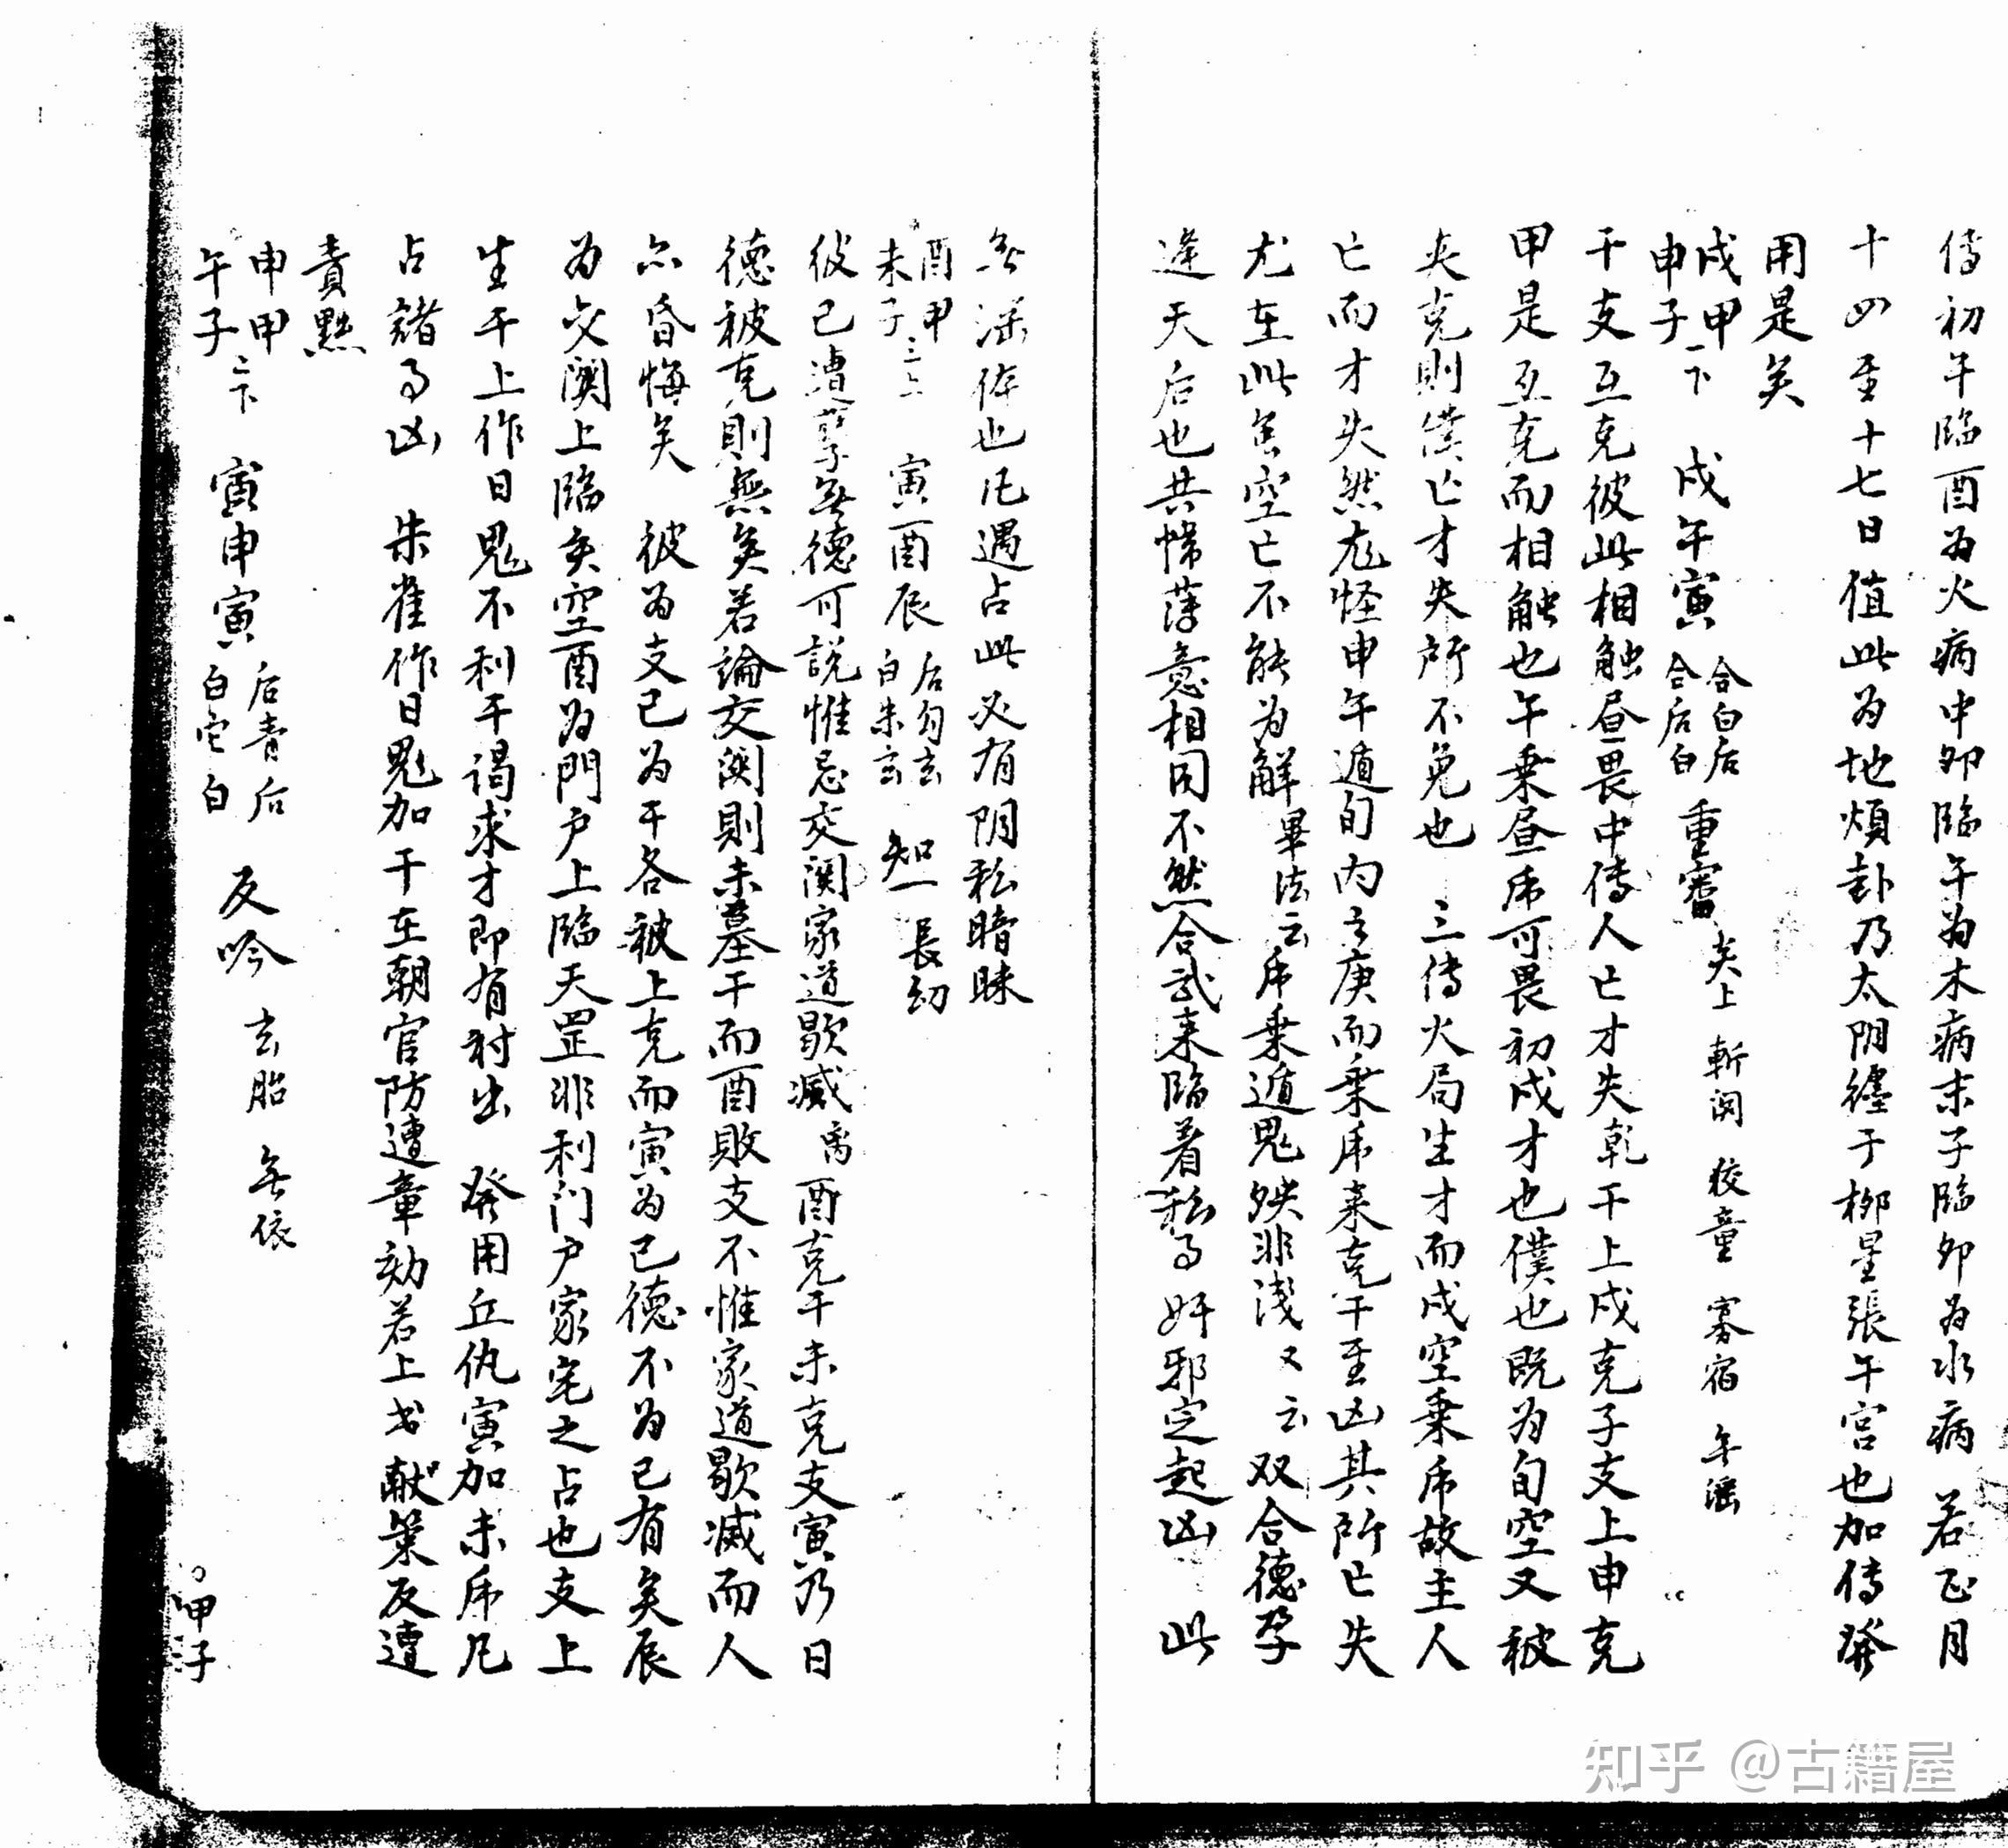 傳初午臨酉为火病中卯臨午为木病末子臨卯为水病 若正月
十四至十七日值此为地煩卦乃太阴纏于柳星張午宫也加傳發
用是矣
戌甲 申子 一下 戌午寅 合白后 合后白 重審 夹上 斬関 狡童 寡宿 午遥
干支互克彼此相触昼畏中傳人亡才失乾干上戌克子支上申克
甲是互克而相触也午乗昼虎可畏初戌才也僕也既为旬空又被
夹克則僕亡才失所不免也 三傳火局生才而戌空乗虎故主人
亡而才失然尤怪申午遁旬内之庚而乗虎来克干至凶其所亡失
尤在此皆空亡不能为解畢法云虎乗遁鬼殃非浅又云双合德孕
逢天后也共幃薄意相因不然合武来臨着私事奸邪定起凶 此
無滛佅也凡遇占此必有阴私暗昧
酉甲 未子 二上 寅酉辰 后勾玄 白朱玄 知一 長幼
彼已遭孽無德可説惟忌交関家道歇滅 离 酉克干未克支寅乃日
德被克則無矣若論交関則未墓干而酉敗支不惟家道歇滅而人
亦昏悔矣 彼为支已为干各被上克而寅为己德不为已有矣辰
为交関上臨矣空酉为門户上臨天罡非利门户家宅之占也支上
生干上作日鬼不利干谒求才即有衬出 發用丘仇寅加未虎凡
占諸事凶 朱雀作日鬼加干在朝官防遭章劾若上书献策反遭
責黜
申甲 午子 二下 寅申寅 后青后 白它白 反吟 玄胎 無依
甲子
知乎 @古籍屋